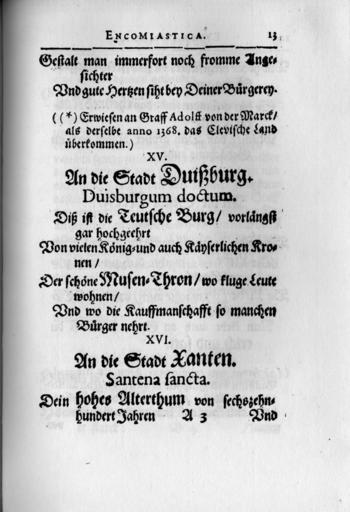 ENCOMIASTICA. 13
Gestalt man immerfort noch fromme Ange-
sichter
Vnd gute Hertzen siht bey Deiner Bürgerey.
((*) Erwiesen an Graff Adolff von der Marck/
als derselbe anno 1368. das Clevische Land
überkommen.)
XV.
An die Stadt Duißburg.
Duisburgum doctum.
Diß ist die Teutsche Burg/ vorlängst
gar hochgeehrt
Von vielen König-und auch Käyserlichen Kro-
nen/
Der schöne Musen-Thron/ wo kluge Leute
wohnen/
Vnd wo die Kauffmanschafft so manchen
Bürger nehrt.
XVI.
An die Stadt Xanten.
Santena sancta.
Dein hohes Alterthum von sechszehn-
hundert Jahren A 3 Vnd